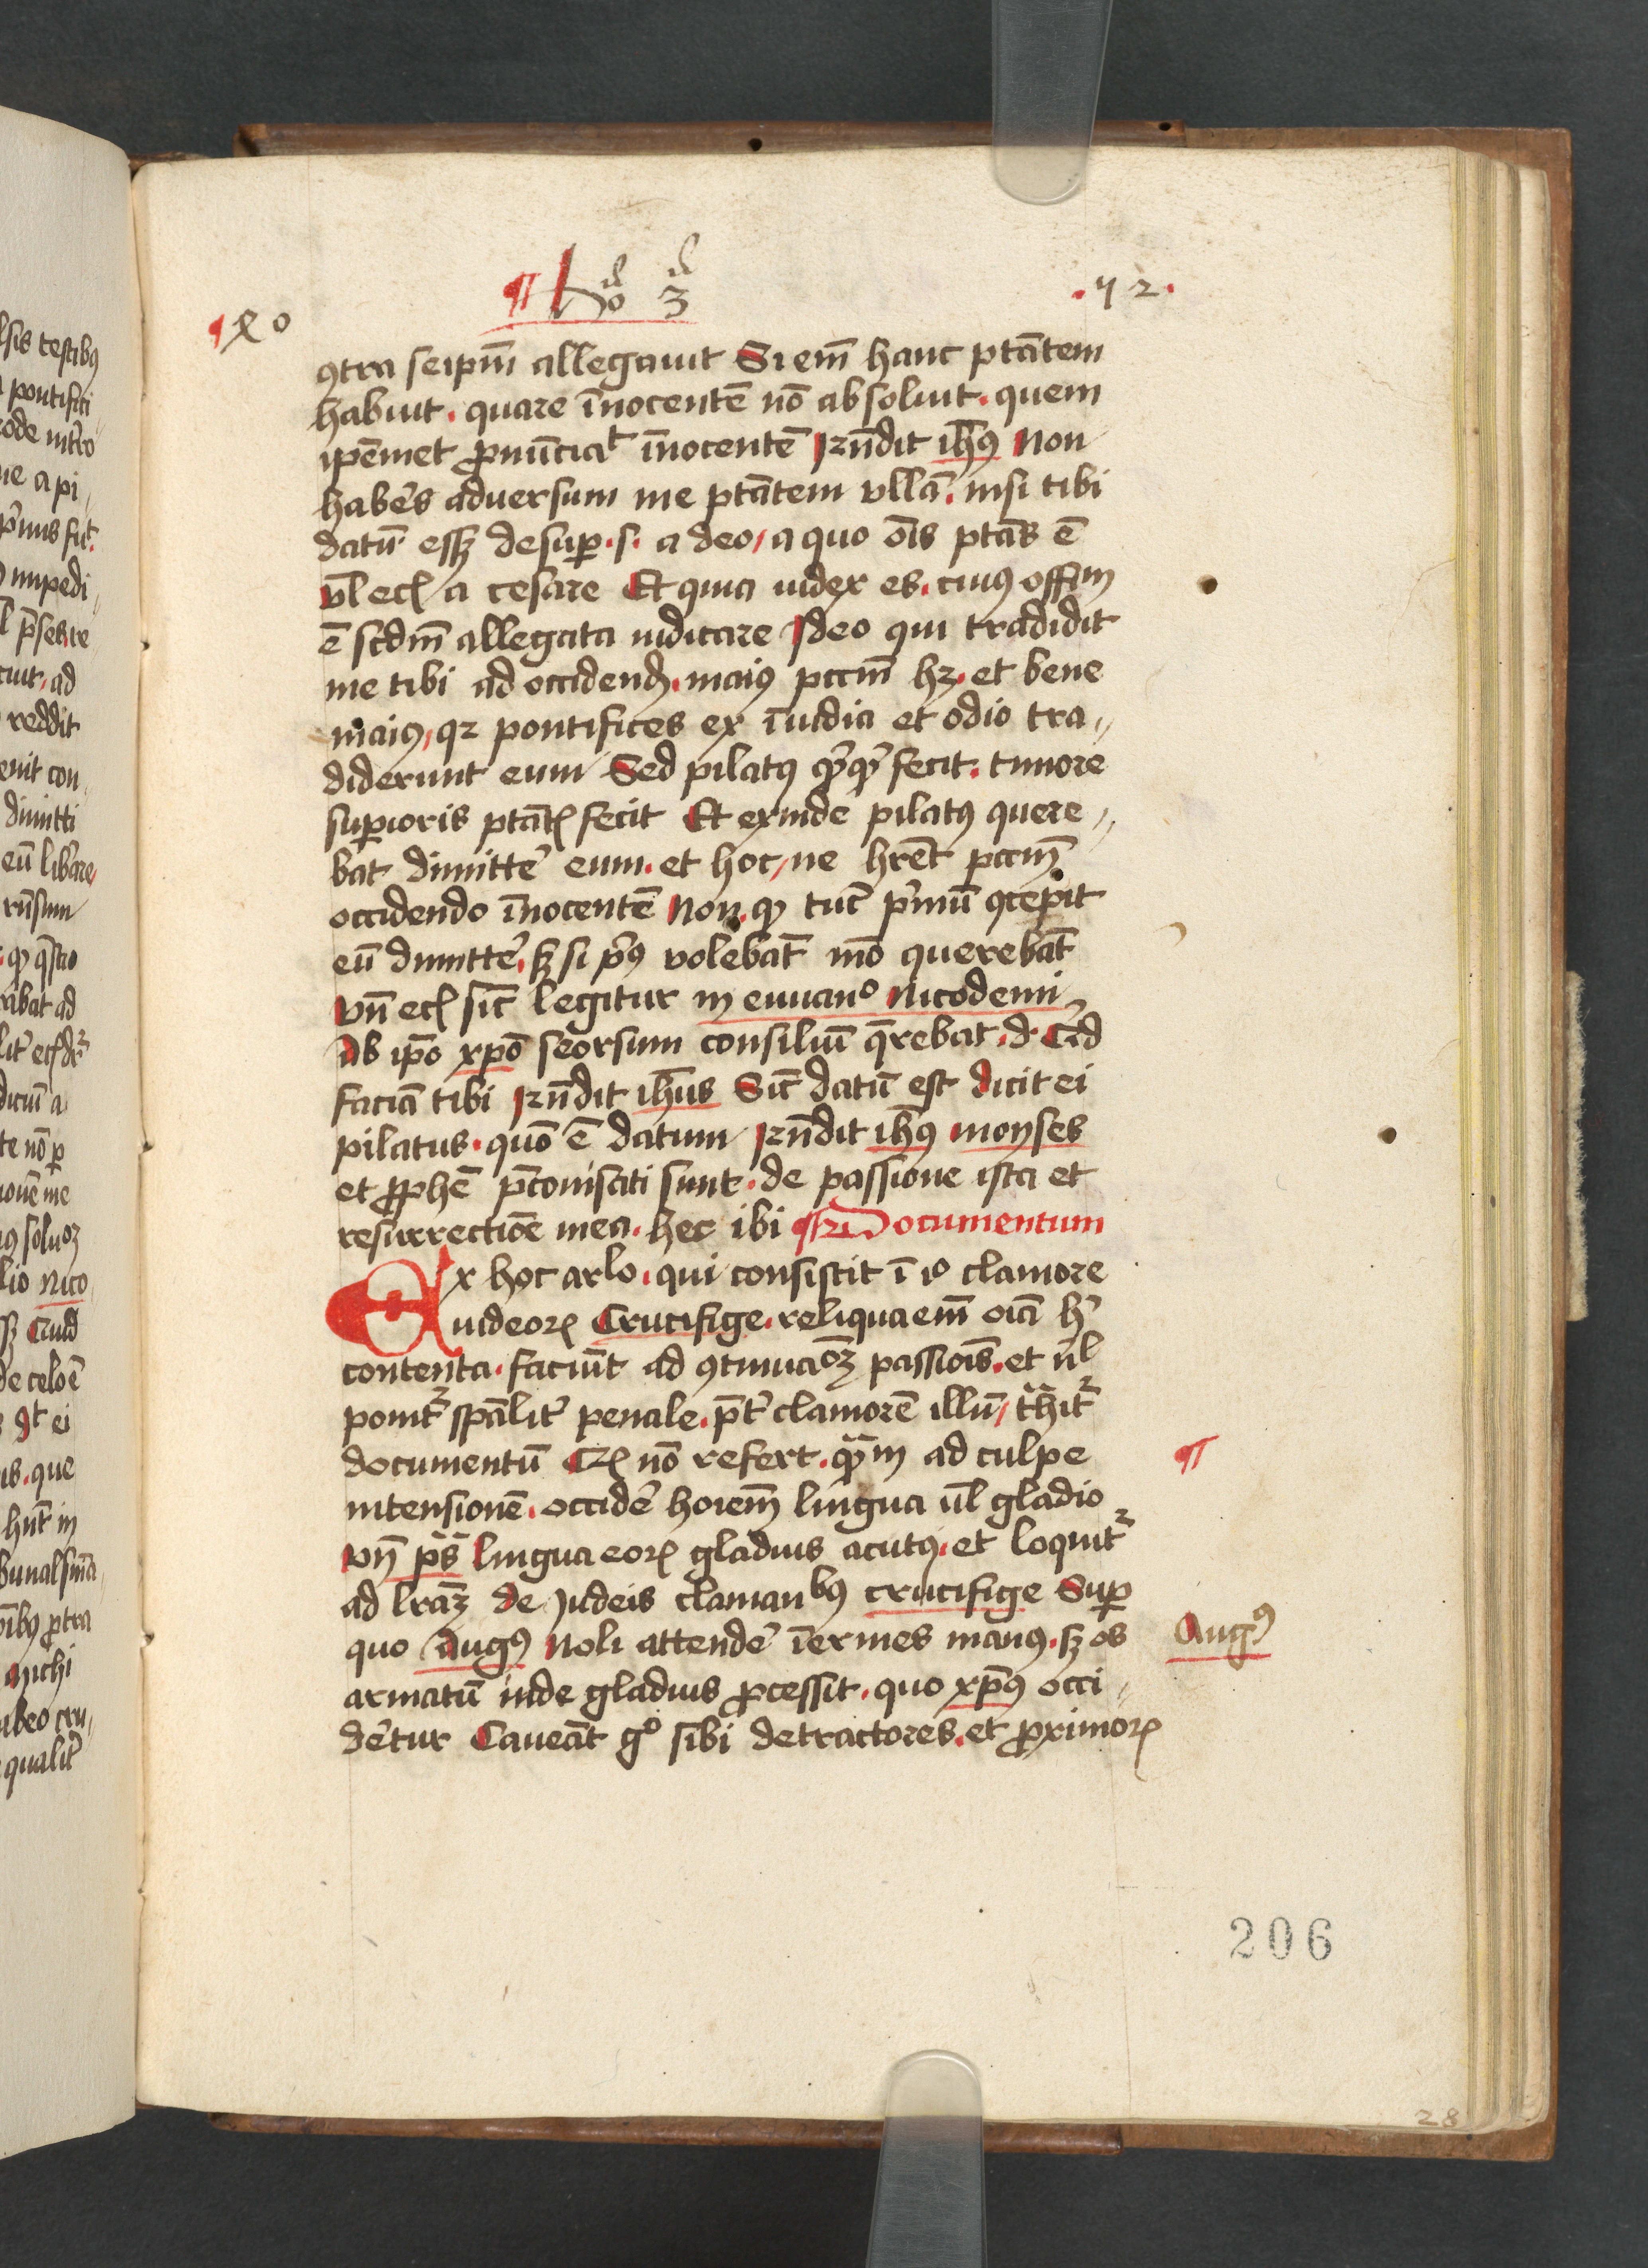 ¶ ho 3
. 72 .
¶ xo
ꝯtra seip̄m allegauit Si em̄ hanc ptāтem
habuit . quare īnocentē nō absoluit . quem
ip̄emet ꝓnūciat īnocentē Rn̄dit ih̄us Non
haberēs aduersum me ptātem vllā . nisi tibi
datū essꝫ desuꝑ . s . a deo / a quo oīs ptās ē
vl̄ ecꝭ a cesare Et quia iudex es . cuiꝰ offm̄
ē scdm̄ allegata iudicare Ideo qui tradidit
me tibi ad occidendꝭ . maiꝰ pccm̄ hꝫ . et bene
maiꝰ / qꝛ pontifices ex īuidia et odio tra〃
diderunt eum Sed pilatꝰ qͥcqͥd fecit . timore
suꝑioris ptātꝭ fecit Et exinde pilatꝰ quere〃
bat dimitte͛ eum . et hoc / ne hr̄et pccm̄
occidendo īnocentē Non . ꝙ tūc pͥmū ꝯcepit
eū dimitte͛ . sꝫ si pͥꝰ volebat mō querebat
Vn̄ ecꝭ sic̄ legitur in euuanᵒ Nicodemi
Ab ip̄o xp̄o seorsum consiliū q̄rebat . d . Qͥd
faciā tibi Rn̄dit ih̄us Sic̄ datū est dicit ei
pilatus . quō ē datum Rn̄dit ih̄ꝰ moyses
et ꝓphē p̄conisati sunt . de passione ista et
resurrectiōe mea . hec ibi ¶ Documentum
Ex hoc arᵗlo . qui consistit ī iᵒ clamore
iudeorꝭ Crucifige . reliqua em̄ oīa hͥ
contenta . faciūt ad ꝯtinuacōꝫ passiōīs . et nl̄
ponitᷣ spālit͛ penale . p̄t͛ clamorē illū / t͛hitᷣ
documentū Qꝭ nō refert . qͣm̄ ad culpe
intensionē . occide͛ hoīem lingua vl̄ gladio
Vn̄ ps̄ lingua eorꝭ gladius acutꝰ . et loquitᷣ
ad lr̄aꝫ de iudeis clamanᵇꝰ crucifige Suꝑ
quo Augꝰ Noli attende͛ īermes manꝰ . sꝫ os
armatū inde gladius ꝓcessit . quo xp̄ꝰ occi〃
de͛tur Caueāt gᵒ sibi detractores . et ꝓximorꝭ
¶
Augꝰ
206
28